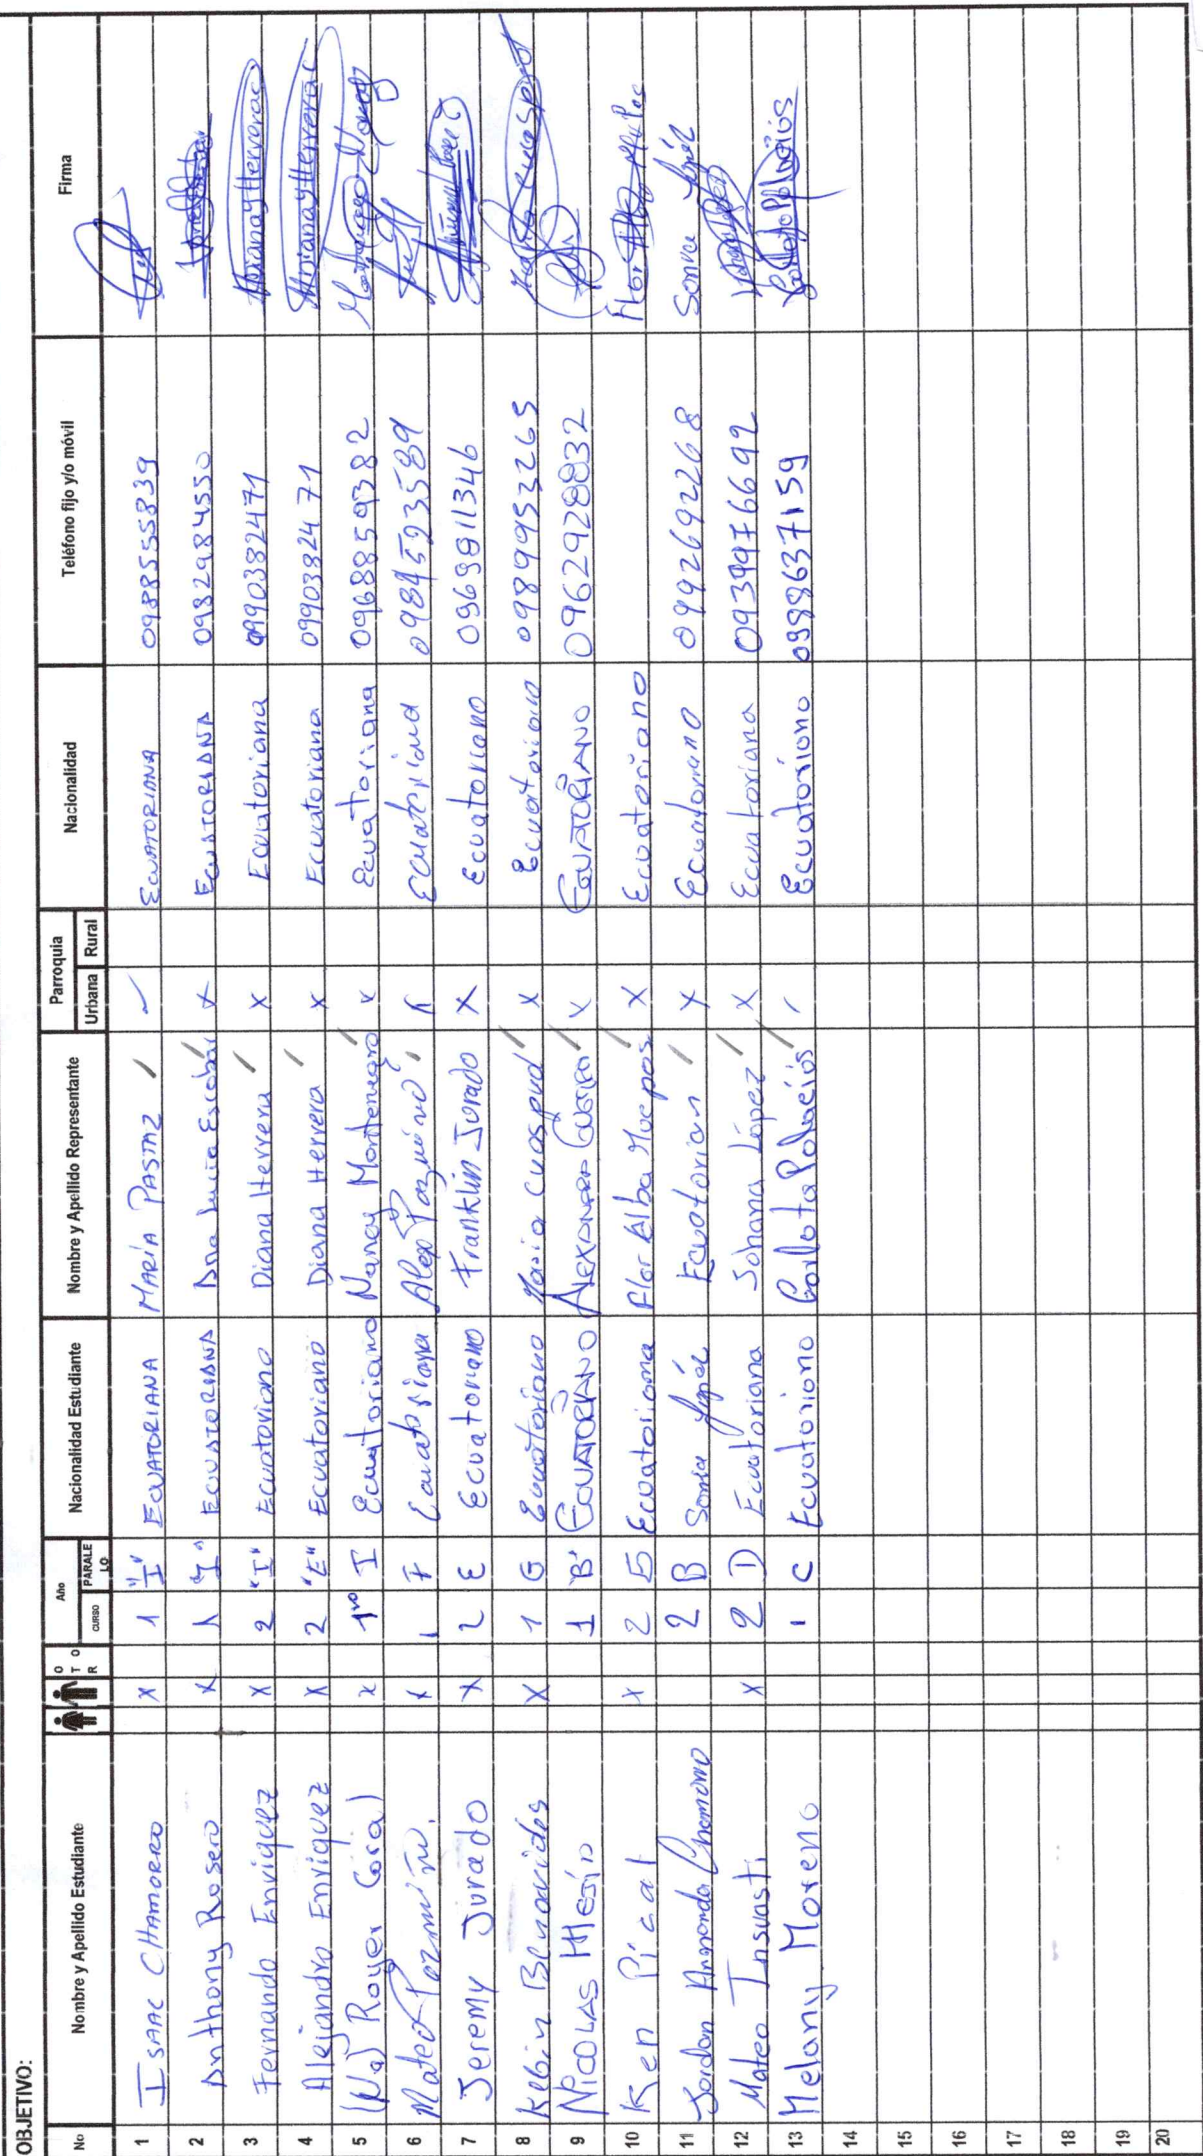 OBJETIVO:
No Nombre y Apellido Estudiante OTOR Año CURSO PARALELO Nacionalidad Estudiante Nombre y Apellido Representante Parroquia Urbana Rural Nacionalidad Teléfono fijo y/o móvil Firma
1 ISAAC CHAMORRO x 1 "I" ECUATORIANA MARÍA PASTAZ ECUATORIANA 0985555839
2 Anthony Rosero x 1 "I" ECUATORIANA Ana Lucía Escobar x ECUATORIANA 0982984550
3 Fernando Enriquez x 2 "I" Ecuatoriano Diana Herrera x Ecuatoriana 0990382471
4 Alejandro Enriquez x 2 "E" Ecuatoriano Diana Herrera x Ecuatoriana 0990382471
5 Royer Coral x 1ro I Ecuatoriano Nancy Montenegro x Ecuatoriana 0968859382
6 Mateo Pazmiño. x 1 F Ecuatoriana Alex Pazmiño Ecuatoriana 0984593589
7 Jeremy Jurado x 2 E Ecuatoriano Franklin Jurado x Ecuatoriano 0969811346
8 Kebin Benavides x 1 G Ecuatoriano Maria Cuaspud x Ecuatoriano 0989953265
9 NICOLAS 1 B' ECUATORIANO ALEXANDRA x ECUATORIANO 0962928832
10 Ken Pical x 2 Ecuatoriana Flor Alba x Ecuatoriano
11 Jordan Chamorro 2 B Sonia López Ecuatorian x Ecuatoriano 0992692268 Sonia López
12 Mateo Insuasti x 2 D Ecuatoriana Johana López x Ecuatoriana 0939976692
13 Melany Moreno 1 C Ecuatoriano Carlota Palacios Ecuatoriano 0988637159
14
15
16
17
18
19
20